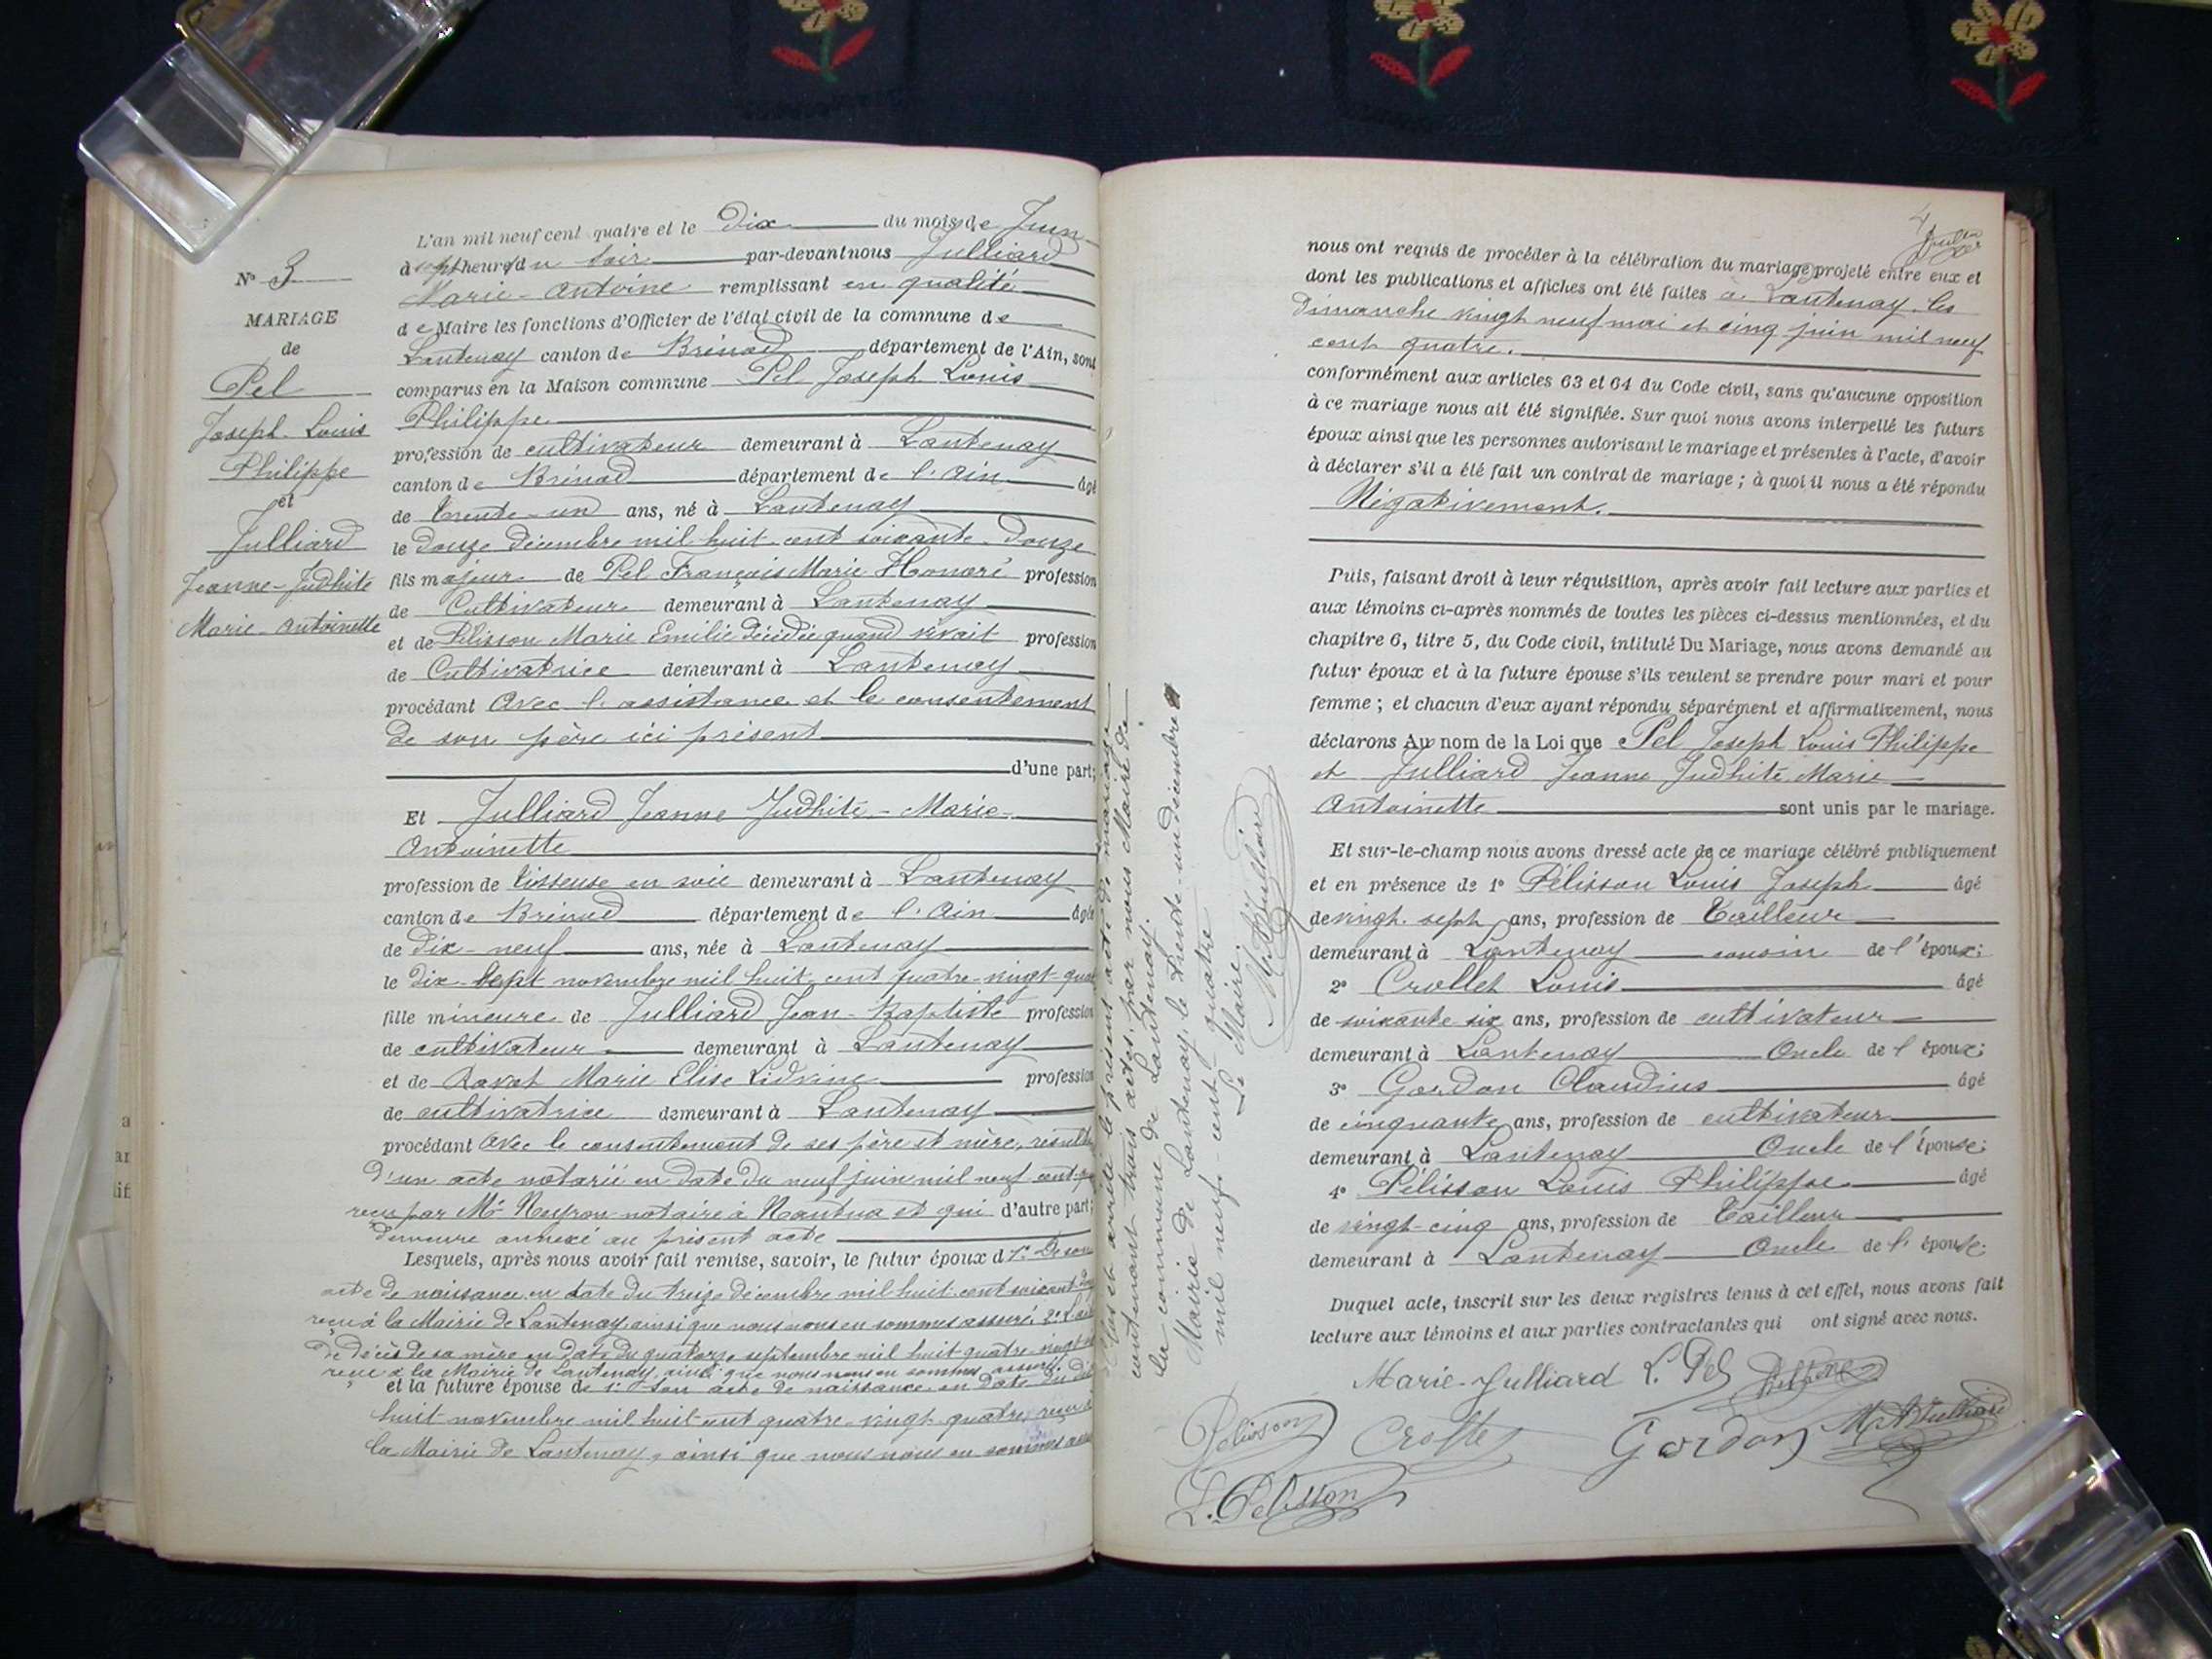 N° 3
MARIAGE
de
Pel
Joseph Louis
Philippe
et
Julliard
Jeanne-Judhite
Marie-Antoinette
L'an mil neuf cent quatre et le Dix du mois de Juin
à sept heures du soir par-devant nous Julliard
Marie-Antoine remplissant en qualité
de Maire les fonctions d'Officier de l'état civil de la commune de
Lantenay canton de Brénod département de l'Ain, sont
comparus en la Maison commune Pel Joseph Louis
Philippe
profession de cultivateur demeurant à Lantenay
canton de Brénod département de l'Ain âgé
de trente-un ans, né à Lantenay
le douze décembre mil huit cent soixante-douze
fils majeur de Pel François Marie Honoré profession
de Cultivateur demeurant à Lantenay
et de Pélisson Marie Emilie décédée quand vivait profession
de Cultivatrice demeurant à Lantenay
procédant avec l'assistance et le consentement
de son père ici présent
d'une part;
Et Julliard Jeanne Judhite-Marie-
Antoinette
profession de tisseuse en soie demeurant à Lantenay
canton de Brénod département de l'Ain âgée
de dix-neuf ans, née à Lantenay
le dix-sept novembre mil huit cent quatre-vingt-quatre
fille mineure de Julliard Jean-Baptiste profession
de cultivateur demeurant à Lantenay
et de Ravat Marie Elise Lidvine profession
de cultivatrice demeurant à Lantenay
procédant avec le consentement de ses père et mère, résultant
d'un acte notarié en date du neuf juin mil neuf cent
reçu par Mr Neyron notaire à Nantua et qui d'autre part;
demeure annexé au présent acte
Lesquels, après nous avoir fait remise, savoir, le futur époux d 1° De son
acte de naissance en date du treize décembre mil huit cent soixante
reçu à la Mairie de Lantenay ainsi que nous nous en sommes assuré; 2°
de décès de sa mère en date du quatorze septembre mil huit quatre-vingt
reçu à la Mairie de Lantenay, ainsi que nous nous en sommes assuré.
et la future épouse de 1° Son acte de naissance en date du dix
huit novembre mil huit cent quatre-vingt-quatre, reçu à
la Mairie de Lantenay, ainsi que nous nous en sommes
Clos et arrêté le présent acte de mariage
contenant trois actes, par nous Maire de
la commune de Lantenay.
Mairie de Lantenay, le trente-un décembre
mil neuf-cent quatre
Le Maire
M. A. Julliard
nous ont requis de procéder à la célébration du mariage projeté entre eux et
dont les publications et affiches ont été faites à Lantenay, les
dimanche vingt neuf mai et cinq juin mil neuf
cent quatre.
conformément aux articles 63 et 64 du Code civil, sans qu'aucune opposition
à ce mariage nous ait été signifiée. Sur quoi nous avons interpellé les futurs
époux ainsi que les personnes autorisant le mariage et présentes à l'acte, d'avoir
à déclarer s'il a été fait un contrat de mariage; à quoi il nous a été répondu
Négativement.
Puis, faisant droit à leur réquisition, après avoir fait lecture aux parties et
aux témoins ci-après nommés de toutes les pièces ci-dessus mentionnées, et du
chapitre 6, titre 5, du Code civil, intitulé Du Mariage, nous avons demandé au
futur époux et à la future épouse s'ils veulent se prendre pour mari et pour
femme; et chacun d'eux ayant répondu séparément et affirmativement, nous
déclarons Au nom de la Loi que Pel Joseph Louis Philippe
et Julliard Jeanne Judhite Marie
Antoinette sont unis par le mariage.
Et sur-le-champ nous avons dressé acte de ce mariage célébré publiquement
et en présence de 1° Pélisson Louis Joseph âgé
de vingt-sept ans, profession de Tailleur
demeurant à Lantenay cousin de l'époux;
2° Crollet Louis âgé
de soixante six ans, profession de cultivateur
demeurant à Lantenay Oncle de l'époux;
3° Gordon Claudius âgé
de cinquante ans, profession de cultivateur
demeurant à Lantenay Oncle de l'épouse;
4° Pélisson Louis Philippe âgé
de vingt-cinq ans, profession de Tailleur
demeurant à Lantenay Oncle de l'épouse.
Duquel acte, inscrit sur les deux registres tenus à cet effet, nous avons fait
lecture aux témoins et aux parties contractantes qui ont signé avec nous.
Marie-Julliard L. Pel
Pelisson Crollet Gordon M. A. Julliard
L. Pelisson